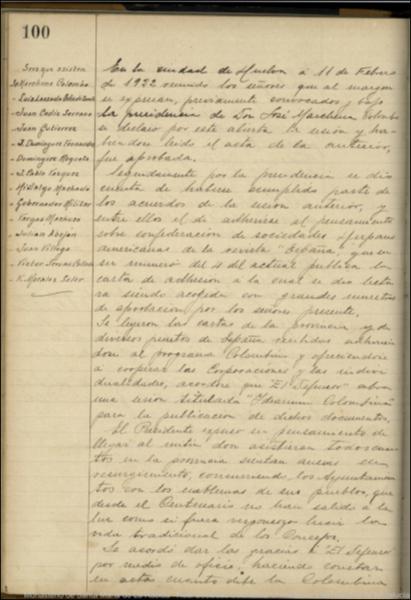 100
Sres que asisten
Marchena Colombo
Juan Cádiz Serrano
Juan Gutierrez
J. Dominguez Fernandez
Dominguez Roqueta
J. Pablo Vazquez
Hidalgo Machado
Gobernador Militar
Vargas Machuca
Julian
José Villegas
Victor
K. Morales Soler
En la ciudad de Huelva á 11 de Febrero
de 1922 reunidos los señores que al margen
se expresan, previamente convocados y bajo
la presidencia de Don José Marchena Colombo
se declaró por este abierta la sesión y ha-
biendose leido el acta de la anterior,
fue aprobada.
Seguidamente por la presidencia se dio
cuenta de haberse cumplido parte de
los acuerdos de la sesión anterior, y
entre ellos el de adherirse al pensamiento
sobre confederación de sociedades Hispano
americanas de la revista "España", que en
su número del 4 del actual publica la
carta de adhesion á la cual se dio lectu
ra siendo acogida con grandes muestras
de aprobación por los señores presente.
Se leyeron las cartas de la provincia y de
diversos puntos de España recibidas adhirien
dose al programa Colombino y ofreciendose
á cooperar las Corporaciones y las indivi
dualidades, acordose que "El Defensor" abra
una sesion titulada "Idearium Colombina"
para la publicacion de dichos documentos.
El Presidente expuso su pensamiento de
llegar al mitin don asistieran todos cuan
tos en la provincia sientan ansias de
resurgimiento, concurriendo los Ayuntamien
tos con los emblemas de sus pueblos, que
desde el Centenario no han salido á la
luz como si fuera vergonzoso lucir la
vida tradicional de los Concejos.
Se acordó dar las gracias á "El Defensor"
por medio de oficio, haciendo constar
en actas cuanto debe la Colombina